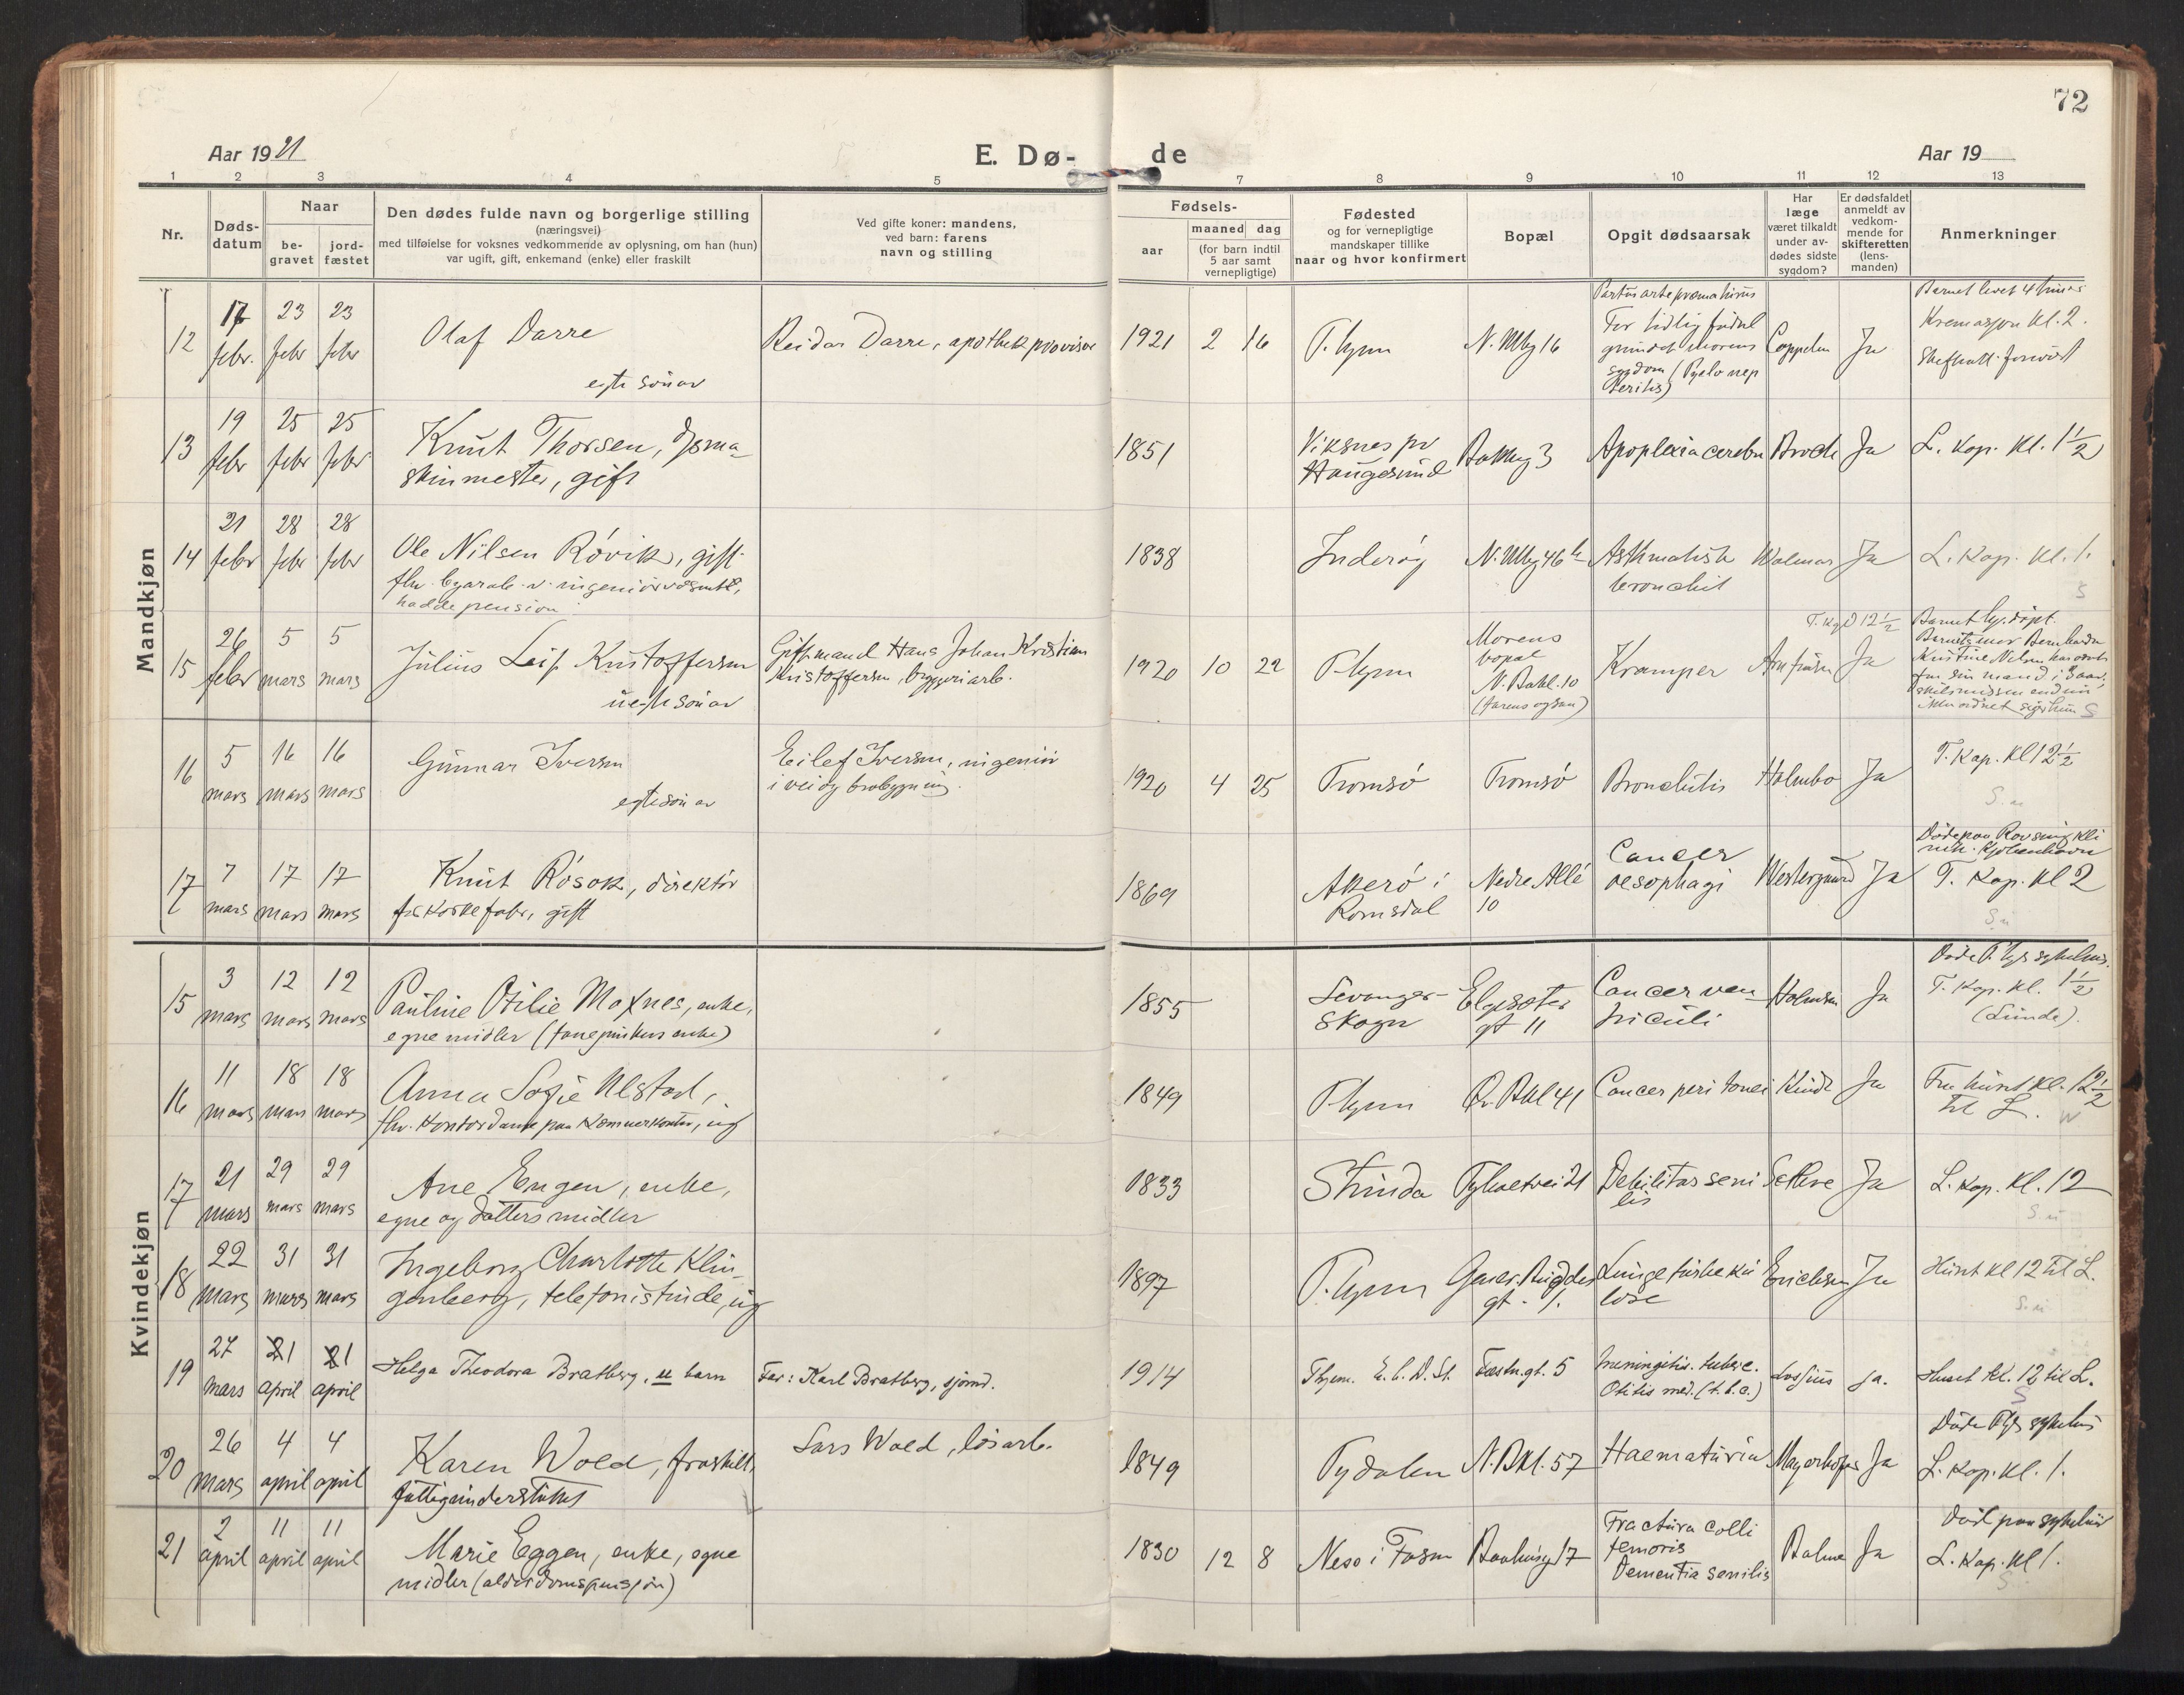 72
Aar 1921
E. Dø-
de
Aar 19
1 2 3 4 5 7 8 9 10 11 12 13
Nr.
Døds-
datum
Naar
be-
gravet
jord-
fæstet
Den dødes fulde navn og borgerlige stilling
(næringsvei)
med tilføielse for voksnes vedkommende av oplysning, om han (hun)
var ugift, gift, enkemand (enke) eller fraskilt
Ved gifte koner: mandens,
ved barn: farens
navn og stilling
Fødsels-
aar
maaned dag
(for barn indtil
5 aar samt
vernepligtige)
Fødested
og for vernepligtige
mandskaper tillike
naar og hvor konfirmert
Bopæl
Opgit dødsaarsak
Har
læge
været tilkaldt
under av-
dødes sidste
sygdom?
Er dødsfaldet
anmeldt av
vedkom-
mende for
skifteretten
(lens-
manden)
Anmerkninger
Mandkjøn
12
17 23 23
febr. febr febr
Olaf Darre
egte søn av
Reidar Darre, apothekprovisor
1921 2 16
T.hjem
N. Mby 16
Partus arte præmaturus
For tidlig födsel
grundet morens
sygdom (Pyelo nep
Ja
Barnet levet 4 timer
Kremasjon kl. 2.
13
19 25 25
febr febr febr
Knut Thorsen, dpsma-
skinmester, gift
1851
Viksnes pr
Haugesund
Bakkeg 3
Apoplexia cerebri
Broch
Ja
L. Kap. Kl. 1 1/2
14
21 28 28
febr febr febr
Ole Nilsen Rövik, gift
fhv. byarb. v. ingeniörvæsenet,
hadde pension
1838
Inderøy
N. Mbg 46 b
Asthmatisk
bronchit
Ja
L. Kap. Kl. 1.
S
15
26 5 5
febr mars mars
Julius Leif Kristoffersen
uegte søn av
Gift mand Hans Johan Kristian
Kristoffersen, bryggeriarb.
1920 10 22
T.hjem
Morens
bopæl
N. Bakl. 10
(farens ogsaa)
Kramper
Ja
T. Kap 12 1/2
Barnet hj.döpt.
Barnets mor Bernharda
Kristine Nilsen
S
16
5 16 16
mars mars mars
Gunnar Iversen
egte søn av
Eilef Iversen, ingeniör
i vei og brobygning.
1920 4 25
Tromsö
Tromsö
Bronchitis
Holmbo
Ja
T. Kap. Kl 12 1/2
17
7 17 17
mars mars mars
Knut Rösok, direktör
gift
1869
Akerö i
Romsdal
Nedre Allé
10
Cancer
oesophagi
Ja
Döde paa Rovsing kli
nik. Kjöbenhavn
T. Kap. Kl 2
Kvindekjøn
15
3 12 12
mars mars mars
Pauline Otilie Moxnes, enke,
egne midler
1855
Levanger-
Skogn
Elgesæter
gt 11
Cancer ven
triculi
Ja
Döde T.hjs sykehus.
T. Kap. kl. 1 1/2
(Lunde).
16
11 18 18
mars mars mars
Anna Sofie Ulstad,
fhv. Kontordame paa Kæmnerkontor, ug
1849
T.hjem
Öv. Bkl 41
Cancer peritonei
Ja
Fra huset kl. 12 1/2
til L.
17
21 29 29
mars mars mars
Ane Engen, enke,
egne og datters midler
1833
Strinda
Tyholtvei 21
Debilitas seni
lis
Ja
L. Kap. Kl. 12
18
22 31 31
mars mars mars
Ingeborg Charlotte Klin-
genberg, telefonistinde, ug
1897
T.hjem
Gener. Buddes
gt. 1.
Lungetuberku
lose
Erichsen
Ja
Huset kl 12 til L.
19
27 1 1
mars april april
Helga Theodora Bratberg, u barn
Far: Karl Bratberg, sjömd.
1914
Thjem. E. C. D. St.
Fæstn.gt. 5
meningitis. tuberc.
Otitis med. (t.b.c.)
Lossius
ja.
Huset Kl. 12 til L.
S
20
26 4 4
mars april april
Karen Wold, fraskilt,
fattigunderstöttet
Lars Wold, lösarb.
1849
Tydalen
N. Bkl. 57
Haematuria
Mayerhofer
Ja
Döde T.hjs sykehus
L. Kap. kl. 1.
21
2 11 11
april april april
Marie Eggen, enke, egne
midler (alderdomspensjon)
1830 12 8
Neso i Fosen
17
Fractura colli
femoris
Dementia senilis
Ja
Död paa sykehus
L. Kap. kl 1.
S